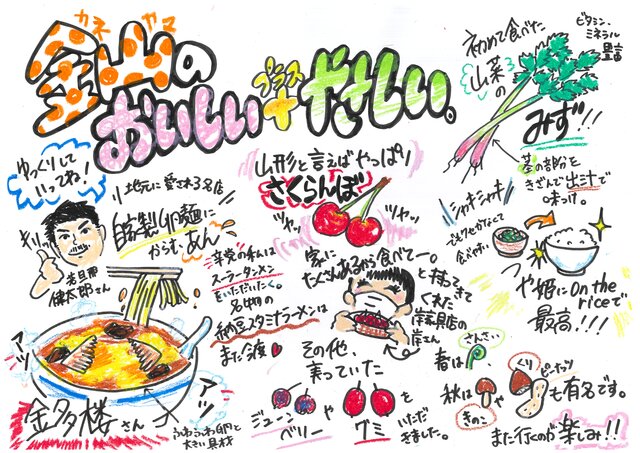 カネヤマ
金山の
おいしい
プラス
+
やさしい。
ゆっくりして
いってね!
キリッ
若旦那
健太郎さん
地元に愛される名店
自家製卵麺に
からむあん
辛党の私は
スーラータンメン
をいただいたく。
名物の
納豆スタミナラーメンは
また次
アツ
アツ
金多楼さん
ふわふわ卵と
大きい具材
山形と言えばやっぱり
さくらんぼ
ツヤッ
ツヤッ
家に
たくさんあるから食べてー。
と持ってきて
くれた
家具店の
その他、
実っていた
ジューンベリー
や
グミ
を
いただ
きました。
初めて食べた
山菜の
みず!!
ビタミン・
ミネラル
豊富
茎の部分を
きざんで出汁で
味つけ。
シャキシャキ
でもクセがなくて
食べやすい
つや姫にon the
riceで
最高!!!
春は
さんさい
秋は
きのこ
や
くり
ピーナッツ
も有名です。
また行くのが楽しみ!!